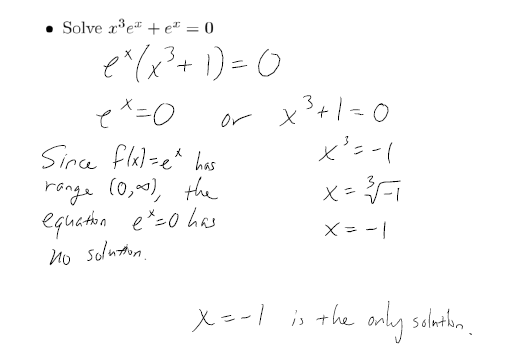 • Solve x³eˣ + eˣ = 0
eˣ(x³ + 1) = 0
eˣ = 0 or x³ + 1 = 0
Since f(x) = eˣ has
range (0,∞), the
equation eˣ = 0 has
no solution.
x³ = -1
x = ∛-1
x = -1
x = -1 is the only solution.